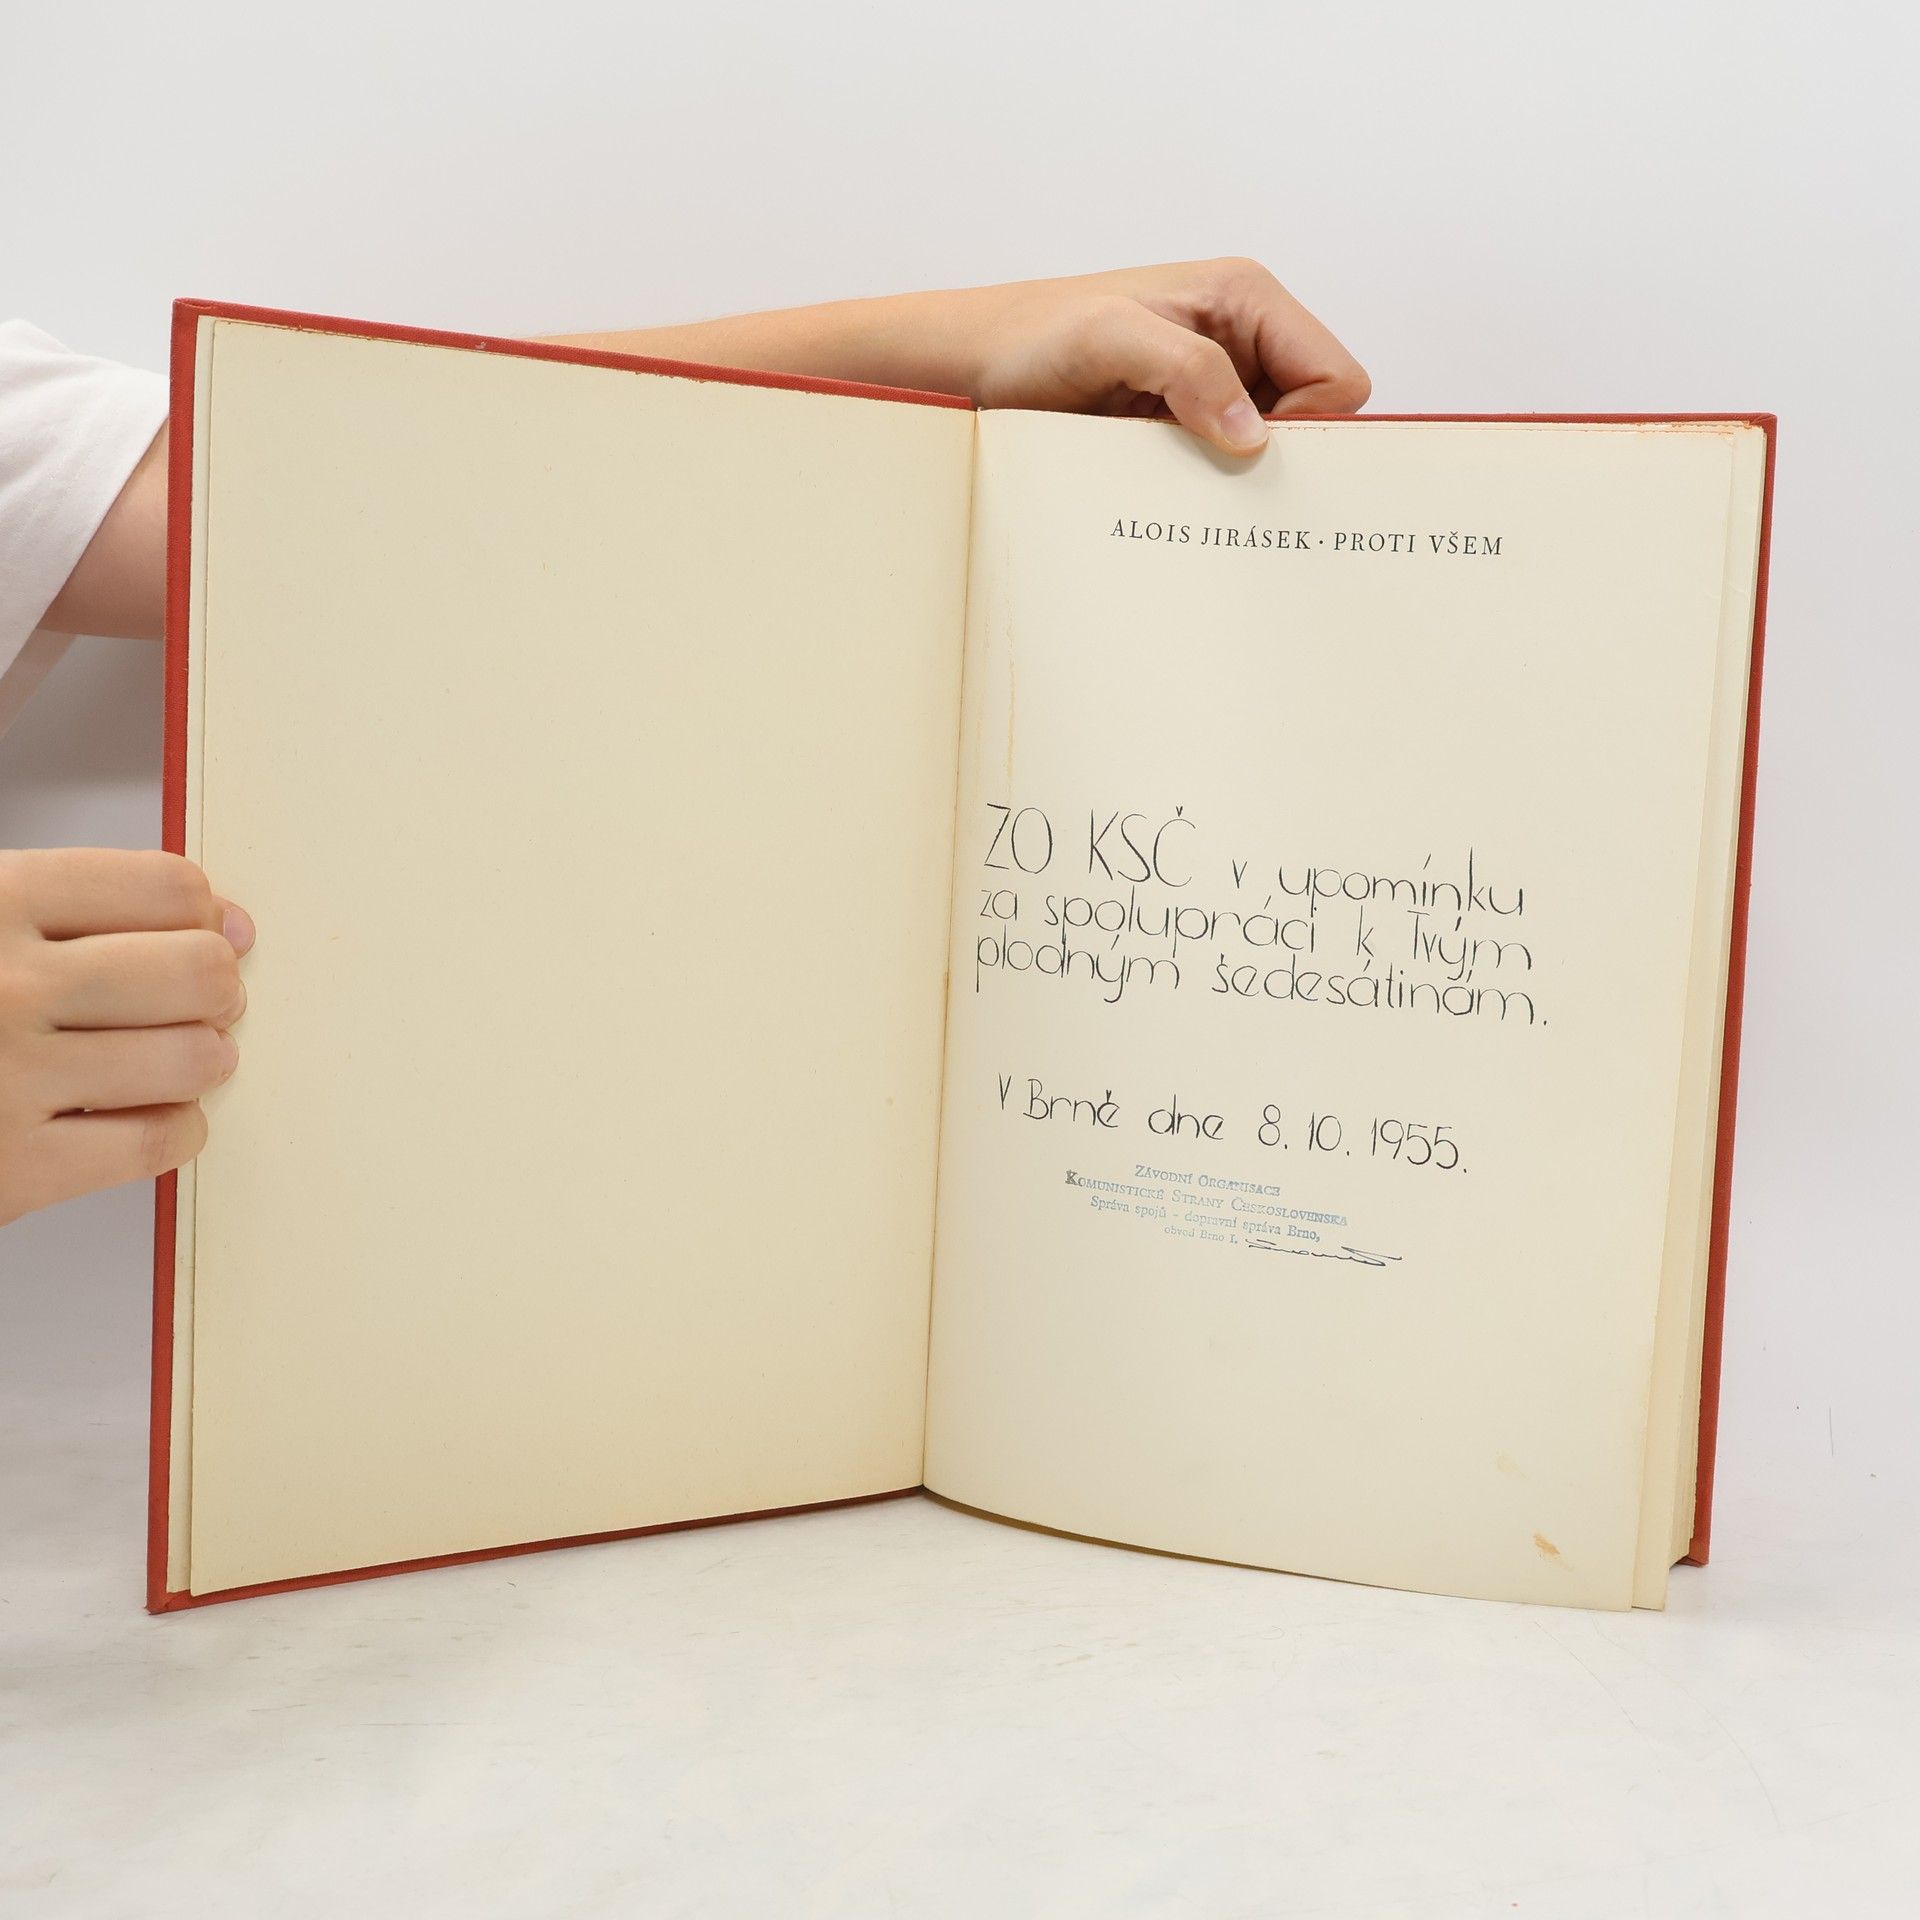 ALOIS JIRÁSEK · PROTI VŠEM
ZO KSČ v upomínku
za spolupráci k Tvým
plodným šedesátinám.
V Brně dne 8. 10. 1955.
ZÁVODNÍ ORGANISACE
KOMUNISTICKÉ STRANY ČESKOSLOVENSKA
Správa spojů - dopravní správa Brno,
obvod Brno I.